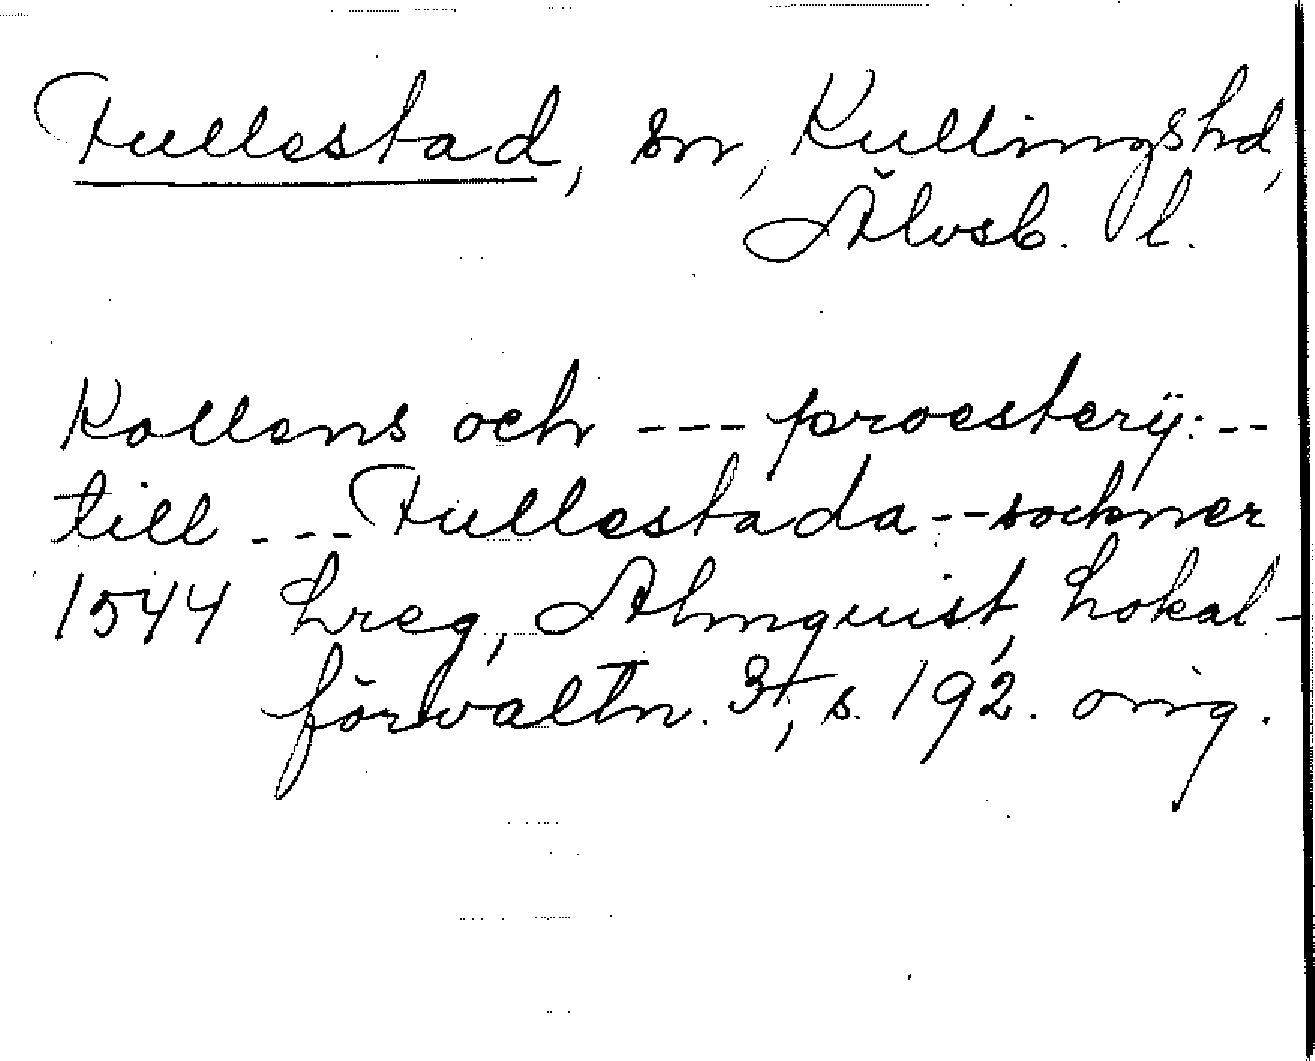 Fullestad, sn, Kullingshd,
Älvsb. l.
Kallens och --- proestery: --
till --- Fullestada -- sockner
1544 Lreg, Almquist, Lokal-
förvaltn. 3¹, s. 192. orig.